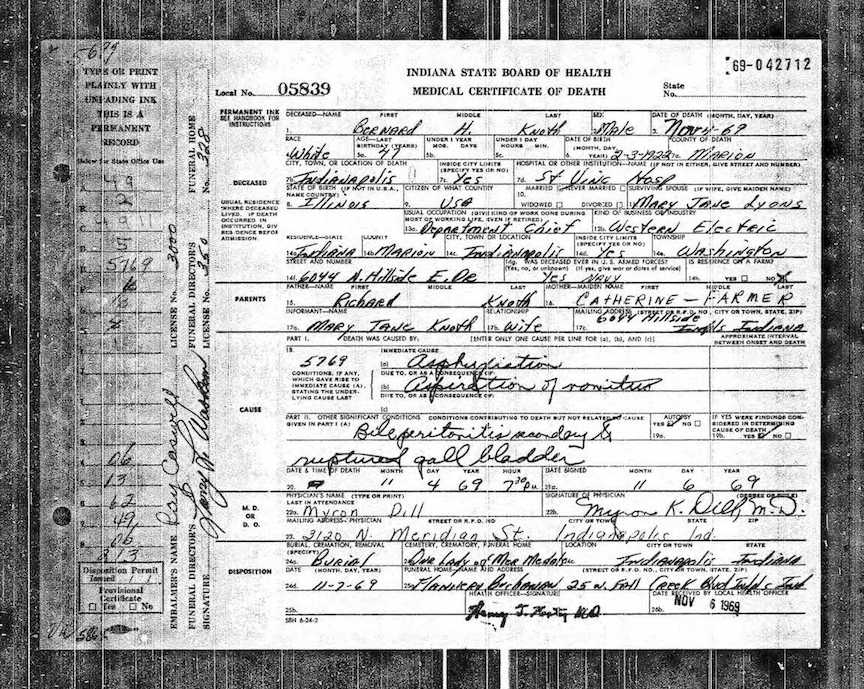 5679
TYPE OR PRINT
PLAINLY WITH
UNFADING INK
THIS IS A
PERMANENT
RECORD
Below for State Office Use
INDIANA STATE BOARD OF HEALTH
MEDICAL CERTIFICATE OF DEATH
69-042712
Local No. 05839
State
No.
PERMANENT INK
SEE HANDBOOK FOR
INSTRUCTIONS
DECEASED—NAME FIRST MIDDLE LAST SEX DATE OF DEATH (MONTH, DAY, YEAR)
1. Bernard H. Knoth 2. Male 3. Nov 4-69
RACE AGE—LAST BIRTHDAY (YEARS) UNDER 1 YEAR MOS. DAYS UNDER 1 DAY HOURS MIN. DATE OF BIRTH (MONTH, DAY, YEAR) COUNTY OF DEATH
4. White 5a. 47 5b. 5c. 6. 2-3-1922 7a. Marion
CITY, TOWN, OR LOCATION OF DEATH INSIDE CITY LIMITS (SPECIFY YES OR NO) HOSPITAL OR OTHER INSTITUTION—NAME (IF NOT IN EITHER, GIVE STREET AND NUMBER)
7b. Indianapolis 7c. Yes 7d. St Vinc Hosp
DECEASED
USUAL RESIDENCE
WHERE DECEASED
LIVED. IF DEATH
OCCURRED IN
INSTITUTION, GIVE
RESIDENCE BEFORE
ADMISSION.
STATE OF BIRTH (IF NOT IN U.S.A., NAME COUNTRY) CITIZEN OF WHAT COUNTRY MARRIED NEVER MARRIED WIDOWED DIVORCED SURVIVING SPOUSE (IF WIFE, GIVE MAIDEN NAME)
8. Illinois 9. USA 10. Mary Jane Lyons
USUAL OCCUPATION (GIVE KIND OF WORK DONE DURING MOST OF WORKING LIFE, EVEN IF RETIRED) KIND OF BUSINESS OR INDUSTRY
13a. Department Chief 12b. Western Electric
RESIDENCE—STATE COUNTY CITY, TOWN OR LOCATION INSIDE CITY LIMITS (SPECIFY YES OR NO) TOWNSHIP
14a. Indiana Marion 14c. Indianapolis 14d. Yes Washington
STREET AND NUMBER 14g. WAS DECEASED EVER IN U.S. ARMED FORCES? (Yes, no, or unknown) (If yes, give war or dates of service) IS RESIDENCE ON A FARM?
14f. 6044 N. Hillside E. Dr Yes Navy 14h. YES NO
PARENTS
FATHER—NAME FIRST MIDDLE LAST MOTHER—MAIDEN NAME FIRST MIDDLE LAST
15. Richard Knoth 16. CATHERINE — FARMER
INFORMANT—NAME RELATIONSHIP MAILING ADDRESS (STREET OR R.F.D. NO., CITY OR TOWN, STATE, ZIP)
17a. Mary Jane Knoth 17b. Wife 17c. 6044 Hillside
Indpls Indiana
PART I. DEATH WAS CAUSED BY: [ENTER ONLY ONE CAUSE PER LINE FOR (a), (b), AND (c)] APPROXIMATE INTERVAL BETWEEN ONSET AND DEATH
18. IMMEDIATE CAUSE
5769 (a) Asphyxiation
CAUSE
CONDITIONS, IF ANY,
WHICH GAVE RISE TO
IMMEDIATE CAUSE (A),
STATING THE UNDER-
LYING CAUSE LAST
DUE TO, OR AS A CONSEQUENCE OF:
(b) Aspiration of vomitus
DUE TO, OR AS A CONSEQUENCE OF:
(c)
PART II. OTHER SIGNIFICANT CONDITIONS CONDITIONS CONTRIBUTING TO DEATH BUT NOT RELATED TO CAUSE GIVEN IN PART I (A) AUTOPSY YES NO 19a. IF YES WERE FINDINGS CONSIDERED IN DETERMINING CAUSE OF DEATH 19b. YES NO
Bile peritonitis secondary to
ruptured gall bladder
DATE & TIME OF DEATH MONTH DAY YEAR HOUR DATE SIGNED MONTH DAY YEAR
20. 11 4 69 7:30 PM. 21a. 11 6 69
M. D.
OR
D. O.
PHYSICIAN'S NAME (TYPE OR PRINT) LAST IN ATTENDANCE SIGNATURE OF PHYSICIAN (DEGREE OR TITLE)
22a. Myron Dill 22b. Myron K. Dill, M.D.
MAILING ADDRESS—PHYSICIAN STREET OR R.F.D. NO CITY OR TOWN STATE ZIP
23. 2120 N. Meridian St. Indianapolis Ind.
DISPOSITION
BURIAL, CREMATION, REMOVAL (SPECIFY) CEMETERY, CREMATORY, FUNERAL HOME LOCATION CITY OR TOWN STATE
24a. Burial Indianapolis Indiana
DATE (MONTH, DAY, YEAR) FUNERAL HOME—NAME AND ADDRESS (STREET OR R.F.D. NO., CITY OR TOWN, STATE, ZIP)
24d. 11-7-69 Flanner & Buchanan 25 W. Fall Creek Blvd Indpls Ind
25b. HEALTH OFFICER—SIGNATURE DATE RECEIVED BY LOCAL HEALTH OFFICER
26b. NOV 6 1969
SBH 6-24-2
EMBALMER'S NAME Ray Caswell LICENSE No. 3000
FUNERAL DIRECTOR'S SIGNATURE
FUNERAL DIRECTOR'S LICENSE No. 350
FUNERAL HOME No. 328
49
2
5
5769
06
13
62
49
06
213
Disposition Permit
Issued
Provisional
Certificate
Yes No